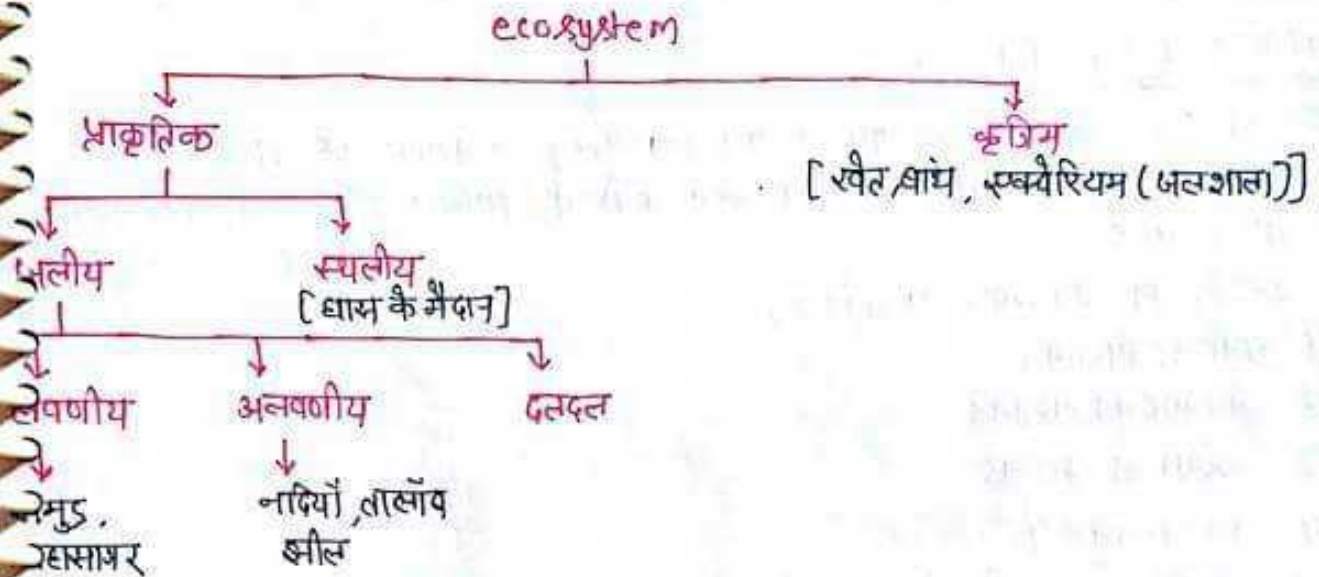 ecosystem
प्राकृतिक
कृत्रिम
[ खेत, बांध, एक्वेरियम (जलशाला)]
जलीय
स्थलीय
[घास के मैदान]
लवणीय
अलवणीय
दलदल
समुद्र,
महासागर
नदियाँ, तालाँब
झील